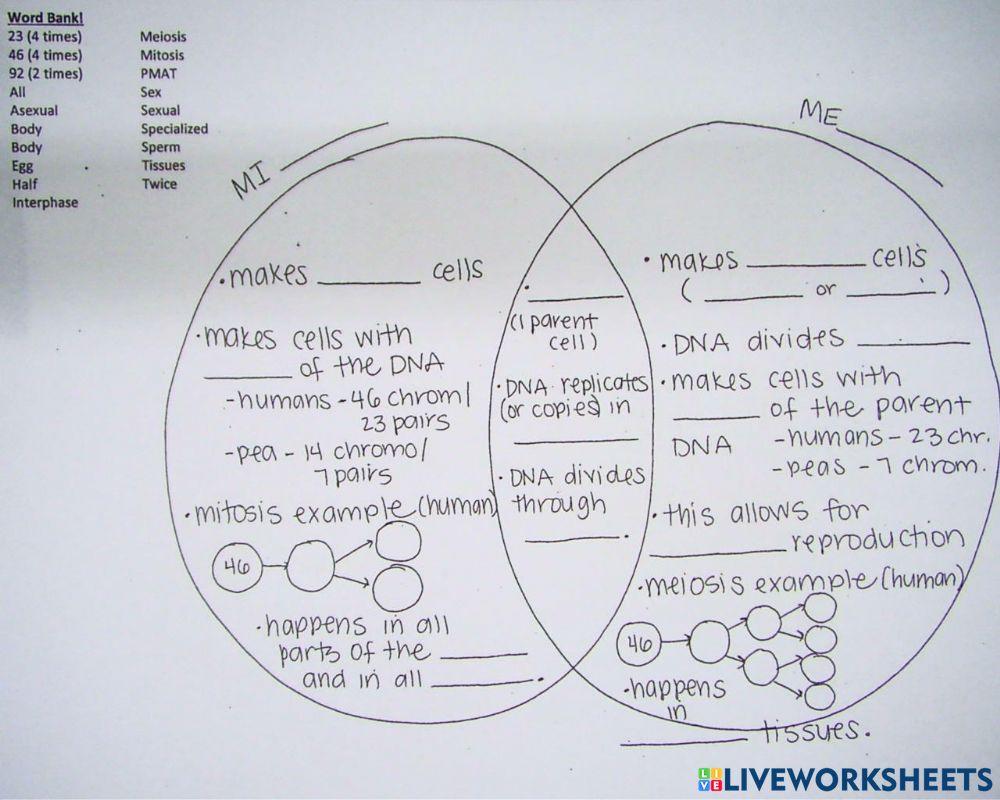 Word Bank!
23 (4 times)
46 (4 times)
92 (2 times)
All
Asexual
Body
Body
Egg
Half
Interphase
Meiosis
Mitosis
PMAT
Sex
Sexual
Specialized
Sperm
Tissues
Twice
MI
·makes ______ cells
·makes cells with
______ of the DNA
-humans-46 chrom/
23 pairs
-pea - 14 chromo/
7 pairs
·mitosis example (human)
46
·happens in all
parts of the ______
and in all ______.
·______
(1 parent
cell)
·DNA replicates
(or copies) in
______
·DNA divides
through
______.
ME
·makes ______ cells
(______ or ______)
·DNA divides ______
·makes cells with
______ of the parent
DNA -humans-23 chr.
-peas -7 chrom.
·this allows for
______ reproduction
·meiosis example (human)
46
·happens
in
______ tissues.
LIVE LIVEWORKSHEETS